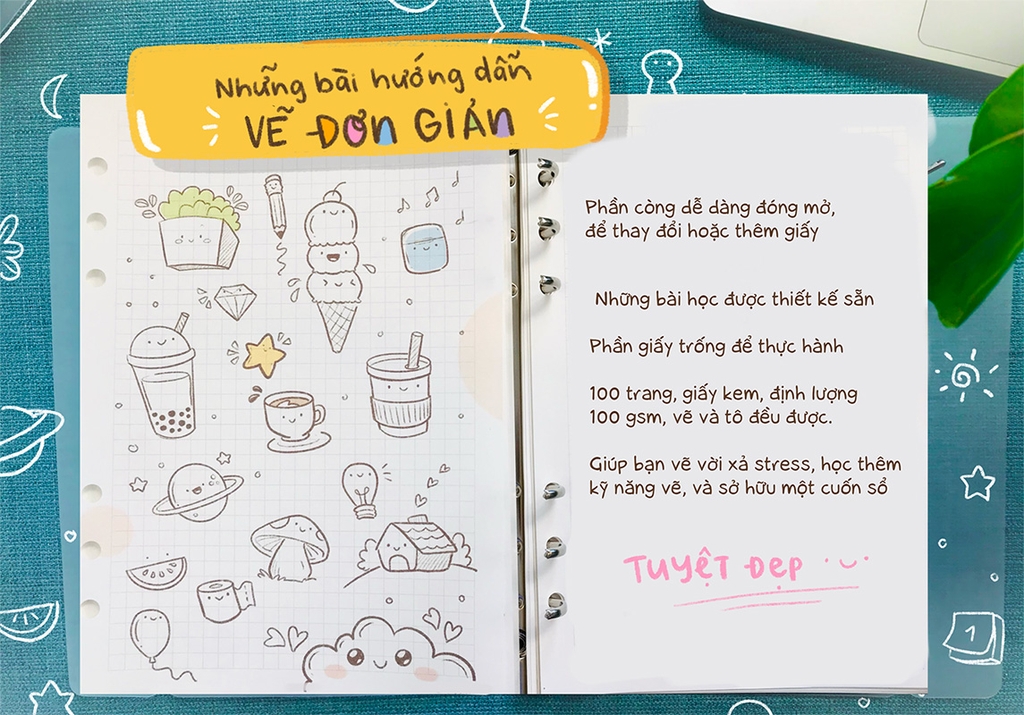 Những bài hướng dẫn
VẼ ĐƠN GIẢN
Phần còng dễ dàng đóng mở,
để thay đổi hoặc thêm giấy
Những bài học được thiết kế sẵn
Phần giấy trống để thực hành
100 trang, giấy kem, định lượng
100 gsm, vẽ và tô đều được.
Giúp bạn vẽ vời xả stress, học thêm
kỹ năng vẽ, và sở hữu một cuốn sổ
TUYỆT ĐẸP
1